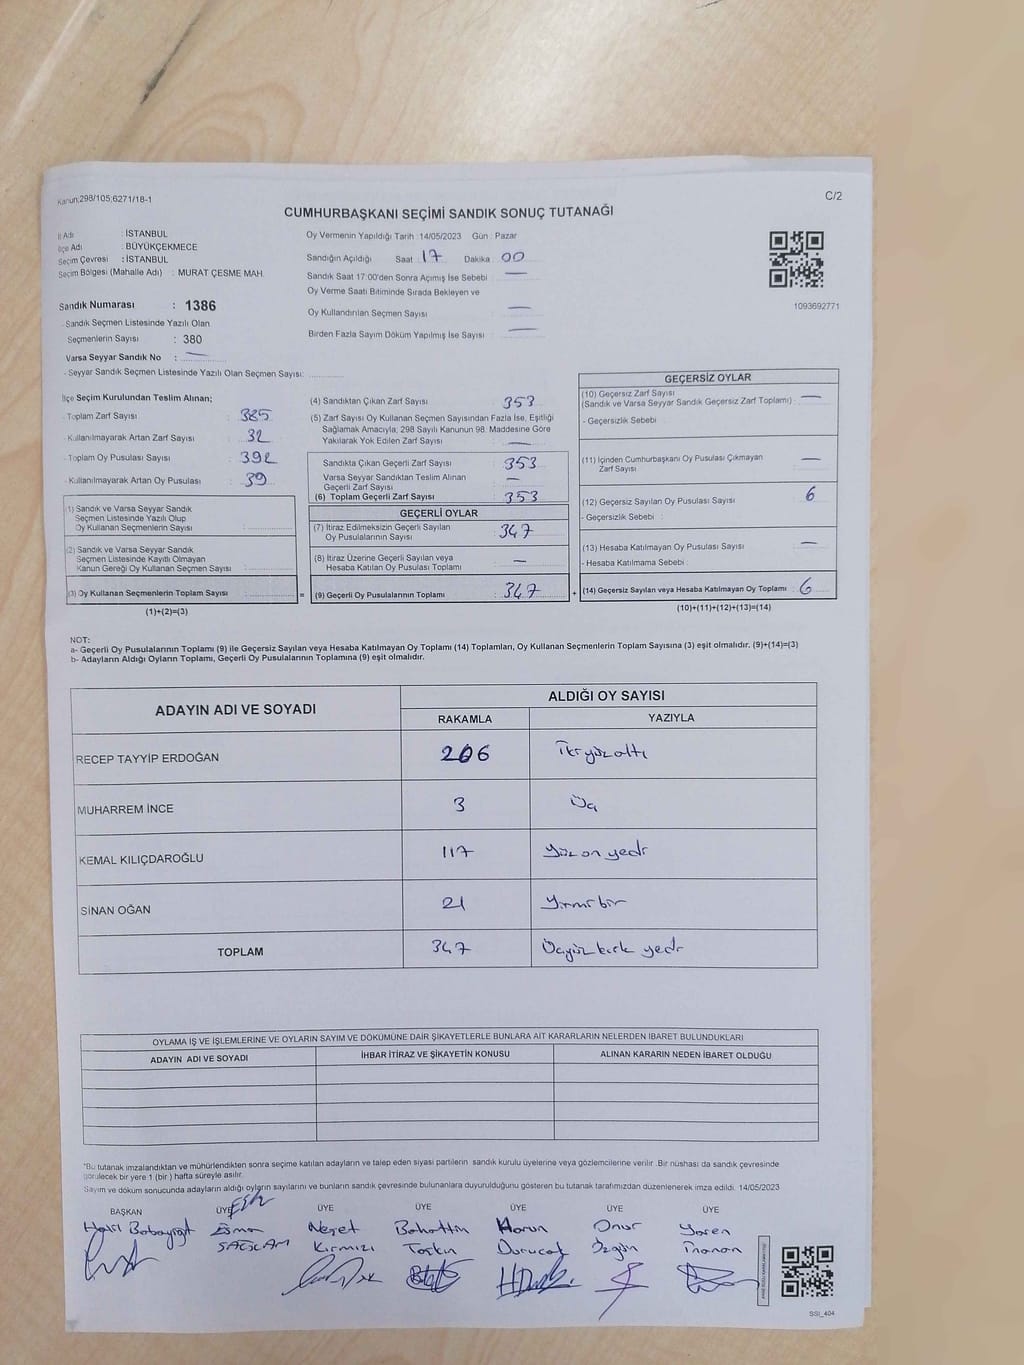 Kanun:298/105;6271/18-1
C/2
CUMHURBAŞKANI SEÇİMİ SANDIK SONUÇ TUTANAĞI
İl Adı : İSTANBUL
İlçe Adı : BÜYÜKÇEKMECE
Seçim Çevresi : İSTANBUL
Seçim Bölgesi (Mahalle Adı) : MURAT ÇESME MAH.
Sandık Numarası : 1386
- Sandık Seçmen Listesinde Yazılı Olan
Seçmenlerin Sayısı : 380
Varsa Seyyar Sandık No : —
- Seyyar Sandık Seçmen Listesinde Yazılı Olan Seçmen Sayısı:
Oy Vermenin Yapıldığı Tarih :14/05/2023 Gün : Pazar
Sandığın Açıldığı Saat : 17 Dakika : 00
Sandık Saat 17:00'den Sonra Açımış İse Sebebi : —
Oy Verme Saati Bitiminde Sırada Bekleyen ve
Oy Kullandırılan Seçmen Sayısı : —
Birden Fazla Sayım Döküm Yapılmış İse Sayısı : —
1093692771
İlçe Seçim Kurulundan Teslim Alınan;
- Toplam Zarf Sayısı : 385
- Kullanılmayarak Artan Zarf Sayısı : 32
- Toplam Oy Pusulası Sayısı : 392
- Kullanılmayarak Artan Oy Pusulası : 39
(1) Sandık ve Varsa Seyyar Sandık
Seçmen Listesinde Yazılı Olup
Oy Kullanan Seçmenlerin Sayısı :
(2) Sandık ve Varsa Seyyar Sandık
Seçmen Listesinde Kayıtlı Olmayan
Kanun Gereği Oy Kullanan Seçmen Sayısı :
(3) Oy Kullanan Seçmenlerin Toplam Sayısı : =
(1)+(2)=(3)
(4) Sandıktan Çıkan Zarf Sayısı : 353
(5) Zarf Sayısı Oy Kullanan Seçmen Sayısından Fazla İse, Eşitliği
Sağlamak Amacıyla; 298 Sayılı Kanunun 98. Maddesine Göre
Yakılarak Yok Edilen Zarf Sayısı : —
Sandıkta Çıkan Geçerli Zarf Sayısı : 353
Varsa Seyyar Sandıktan Teslim Alınan
Geçerli Zarf Sayısı : —
(6) Toplam Geçerli Zarf Sayısı : 353
GEÇERLİ OYLAR
(7) İtiraz Edilmeksizin Geçerli Sayılan
Oy Pusulalarının Sayısı : 347
(8) İtiraz Üzerine Geçerli Sayılan veya
Hesaba Katılan Oy Pusulası Toplamı : —
(9) Geçerli Oy Pusulalarının Toplamı : 347 +
GEÇERSİZ OYLAR
(10) Geçersiz Zarf Sayısı
(Sandık ve Varsa Seyyar Sandık Geçersiz Zarf Toplamı) : —
- Geçersizlik Sebebi :
(11) İçinden Cumhurbaşkanı Oy Pusulası Çıkmayan
Zarf Sayısı : —
(12) Geçersiz Sayılan Oy Pusulası Sayısı : 6
- Geçersizlik Sebebi :
(13) Hesaba Katılmayan Oy Pusulası Sayısı : —
- Hesaba Katılmama Sebebi :
(14) Geçersiz Sayılan veya Hesaba Katılmayan Oy Toplamı : 6
(10)+(11)+(12)+(13)=(14)
NOT:
a- Geçerli Oy Pusulalarının Toplamı (9) ile Geçersiz Sayılan veya Hesaba Katılmayan Oy Toplamı (14) Toplamları, Oy Kullanan Seçmenlerin Toplam Sayısına (3) eşit olmalıdır. (9)+(14)=(3)
b- Adayların Aldığı Oyların Toplamı, Geçerli Oy Pusulalarının Toplamına (9) eşit olmalıdır.
ADAYIN ADI VE SOYADI ALDIĞI OY SAYISI
RAKAMLA YAZIYLA
RECEP TAYYİP ERDOĞAN 206 İkiyüzaltı
MUHARREM İNCE 3 Üç
KEMAL KILIÇDAROĞLU 117 Yüz on yedi
SİNAN OĞAN 21 Yirmi bir
TOPLAM 347 Üçyüz kırk yedi
OYLAMA İŞ VE İŞLEMLERİNE VE OYLARIN SAYIM VE DÖKÜMÜNE DAİR ŞİKAYETLERLE BUNLARA AİT KARARLARIN NELERDEN İBARET BULUNDUKLARI
ADAYIN ADI VE SOYADI İHBAR İTİRAZ VE ŞİKAYETİN KONUSU ALINAN KARARIN NEDEN İBARET OLDUĞU
"Bu tutanak imzalandıktan ve mühürlendikten sonra seçime katılan adayların ve talep eden siyasi partilerin sandık kurulu üyelerine veya gözlemcilerine verilir. Bir nüshası da sandık çevresinde
görülecek bir yere 1 (bir) hafta süreyle asılır.
Sayım ve döküm sonucunda adayların aldığı oyların sayılarını ve bunların sandık çevresinde bulunanlara duyurulduğunu gösteren bu tutanak tarafımızdan düzenlenerek imza edildi. 14/05/2023
BAŞKAN ÜYE ÜYE ÜYE ÜYE ÜYE ÜYE
Halil Babayiğit Esma Neşet Bahattin Harun Onur Yaren
SAĞLAM Kırmızı Taşkın Durucak Özgün İnanan
SSI_404